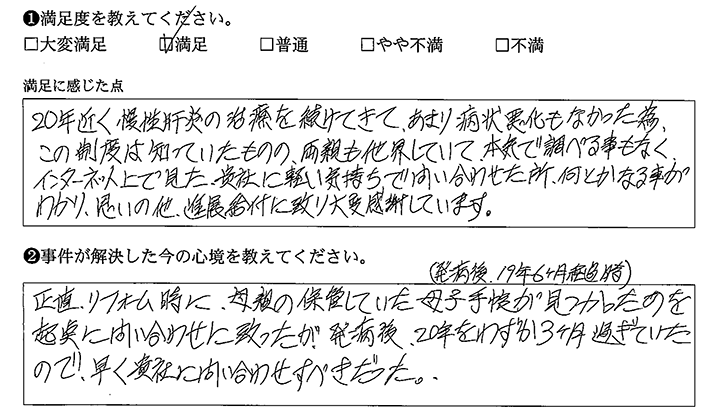 ❶満足度を教えてください。
□大変満足 ☑満足 □普通 □やや不満 □不満
満足に感じた点
20年近く慢性肝炎の治療を続けてきて、あまり病状悪化もなかった為、
この制度は知っていたものの、両親も他界していて、本気で調べる事もなく、
インターネット上で見た、貴社に軽い気持ちで問い合わせた所、何とかなる事が
わかり、思いの他、進展給付に致り大変感謝しています。
❷事件が解決した今の心境を教えてください。
(発病後、19年6ヶ月経過時)
正直、リフォーム時に、母親の保管していた母子手帳が見つかったのを
起点に問い合わせに致ったが、発病後、20年をわずか3ヶ月過ぎていた
ので、早く貴社に問い合わせすべきだった。